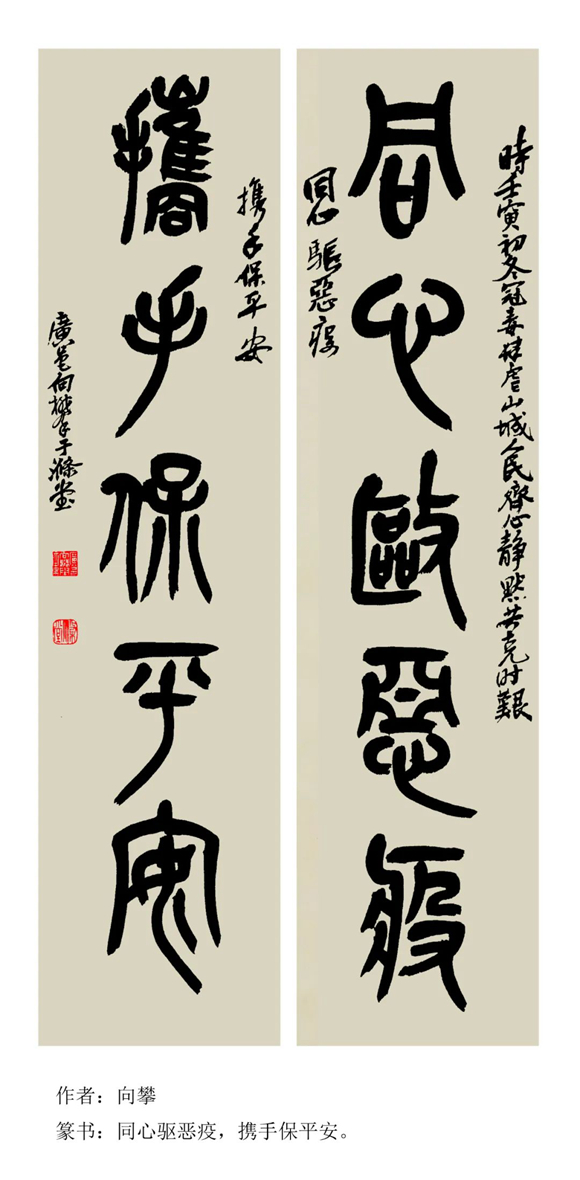 時壬寅初冬冠毒肆虐山城人民齊心静默共克时艱
同心敺惡疫
同心驅惡疫
攜手保平安
携手保平安
廣邑向攀于滌堂
作者：向攀
篆书：同心驱恶疫，携手保平安。